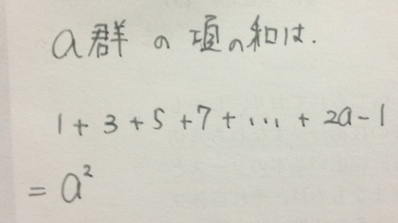 a群の項の和は.
1+3+5+7+…+2a-1
=a²